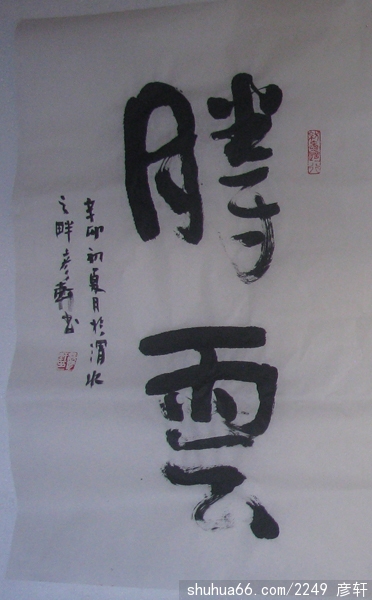 雲
辛卯初夏月於渭水
之畔彦軒书
shuhua66.com/2249 彦轩